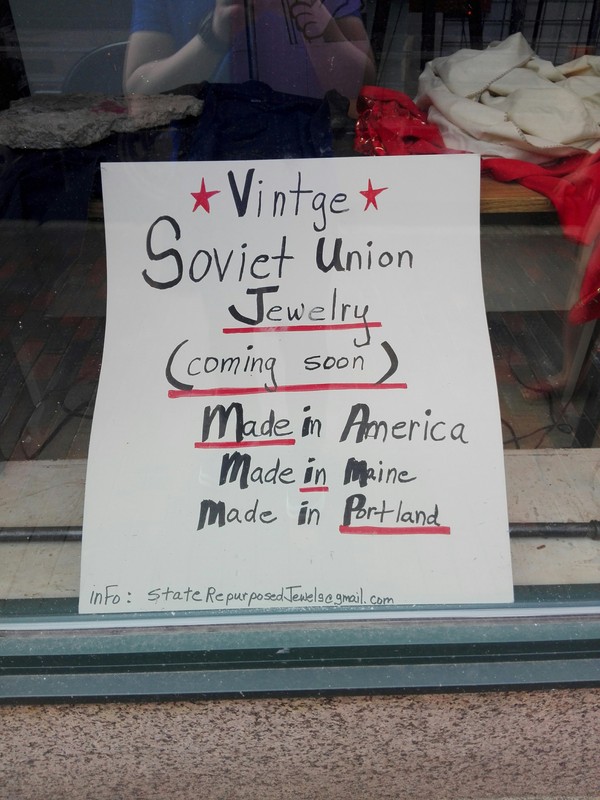 ★ Vintge ★
Soviet Union
Jewelry
(coming soon)
Made in America
Made in Maine
Made in Portland
info: StateRepurposedJewels@gmail.com